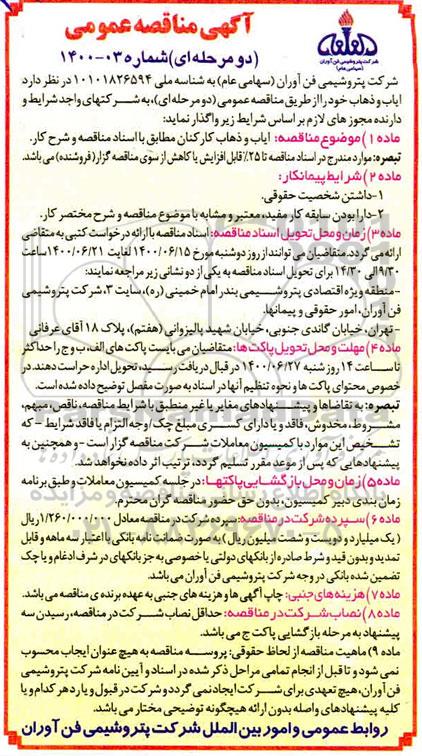 آگهی مناقصه عمومی
(دو مرحله ای) شماره ۰۳-۱۴۰۰
شرکت پتروشیمی فن آوران
(سهامی عام)
شرکت پتروشیمی فن آوران (سهامی عام) به شناسه ملی ۱۰۱۰۱۸۲۶۵۹۴ در نظر دارد
ایاب و ذهاب خود را از طریق مناقصه عمومی (دو مرحله ای)، به شرکتهای واجد شرایط و
دارنده مجوز های لازم بر اساس شرایط زیر واگذار نماید:
ماده ۱) موضوع مناقصه: ایاب و ذهاب کارکنان مطابق با اسناد مناقصه و شرح کار.
تبصره: موارد مندرج در اسناد مناقصه تا ۲۵٪ قابل افزایش یا کاهش از سوی مناقصه گزار (فروشنده) می باشد.
ماده ۲) شرایط پیمانکار:
۱-داشتن شخصیت حقوقی.
۲-دارا بودن سابقه کار مفید، معتبر و مشابه با موضوع مناقصه و شرح مختصر کار.
ماده ۳) زمان و محل تحویل اسناد مناقصه: اسناد مناقصه با ارائه درخواست کتبی به متقاضی
ارائه می گردد. متقاضیان می توانند از روز دوشنبه مورخ ۱۴۰۰/۰۶/۱۵ لغایت ۱۴۰۰/۰۶/۲۱ ساعت
۹/۳۰ الی ۱۴/۳۰ برای تحویل اسناد مناقصه به یکی از دو نشانی زیر مراجعه نمایند:
-منطقه ویژه اقتصادی پتروشیمی بندر امام خمینی (ره)، سایت ۳، شرکت پتروشیمی
فن آوران، امور حقوقی و پیمانها.
-تهران، خیابان گاندی جنوبی، خیابان شهید پالیزوانی (هفتم)، پلاک ۱۸ آقای عرفانی
ماده ۴) مهلت و محل تحویل پاکت ها: متقاضیان می بایست پاکت های الف، ب و ج را حداکثر
تا ساعت ۱۴ روز شنبه ۱۴۰۰/۰۶/۲۷ در قبال دریافت رسید، تحویل اداره حراست دهند. در
خصوص محتوای پاکت ها و نحوه تنظیم آنها در اسناد به صورت مفصل توضیح داده شده است.
تبصره: به تقاضاها و پیشنهادهای مغایر یا غیر منطبق با شرایط مناقصه، ناقص، مبهم،
مشروط، مخدوش، فاقد و یا دارای کسری مبلغ چک / وجه التزام یا فاقد شرایط - که
تشخیص این موارد با کمیسیون معاملات شرکت مناقصه گزار است - و همچنین به
پیشنهادهایی که پس از موعد مقرر تسلیم گردد، ترتیب اثر داده نخواهد شد.
ماده ۵) زمان و محل بازگشایی پاکتها: در جلسه کمیسیون معاملات و طبق برنامه
زمان بندی دبیر کمیسیون، بدون حق حضور مناقصه گران محترم.
ماده ۶) سپرده شرکت در مناقصه: سپرده شرکت در مناقصه معادل ۱/۲۶۰/۰۰۰/۰۰۰ ریال
(یک میلیارد و دویست و شصت میلیون ریال) به صورت ضمانت نامه بانکی با اعتبار سه ماهه و قابل
تمدید و بدون قید و شرط صادره از بانکهای دولتی یا خصوصی به جز بانکهای در شرف ادغام و یا چک
تضمین شده بانکی در وجه شرکت پتروشیمی فن آوران می باشد.
ماده ۷) هزینه های جنبی: چاپ آگهی ها و هزینه های جنبی به عهده برنده ی مناقصه می باشد.
ماده ۸) نصاب شرکت در مناقصه: حداقل نصاب شرکت در مناقصه، رسیدن سه
پیشنهاد به مرحله بازگشایی پاکت ج می باشد.
ماده ۹) ماهیت مناقصه از لحاظ حقوقی: پروسه مناقصه به هیچ عنوان ایجاب محسوب
نمی شود و تا قبل از انجام تمامی مراحل ذکر شده در اسناد و آیین نامه شرکت پتروشیمی
فن آوران، هیچ تعهدی برای شرکت ایجاد نمی گردد و شرکت در قبول و یا رد هر کدام و یا
کلیه پیشنهادهای واصله بدون ارائه هیچگونه توضیحی مختار می باشد.
روابط عمومی و امور بین الملل شرکت پتروشیمی فن آوران